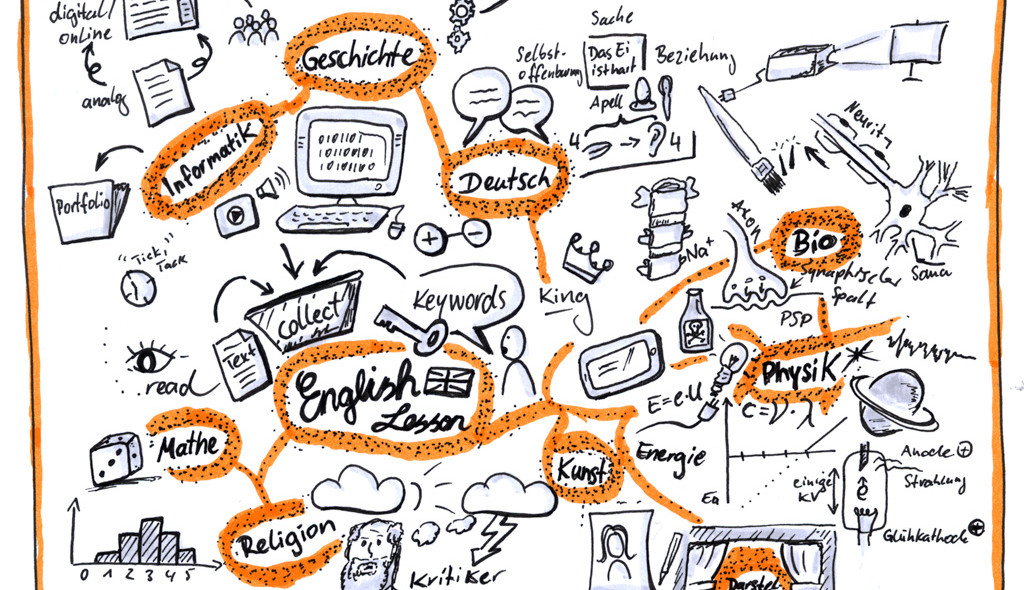 digital/
online
analog
Portfolio
Informatik
Geschichte
0101101
11010101
"Tick,"
Tack
Sache
Selbst-
offenbarung
Das Ei
ist hart
Beziehung
Apell
4
4
Deutsch
Neurit
Axon
Na+
Bio
Synaptischer
Spalt
Soma
PSP
King
collect
Keywords
Text
read
English
Lesson
Mathe
0 1 2 3 4 5
Religion
Kritiker
Kunst
Physik
E=e.U
C=ν·λ
Energie
Anode +
Strahlung
einige
KV
e
Glühkathode +
Darstel